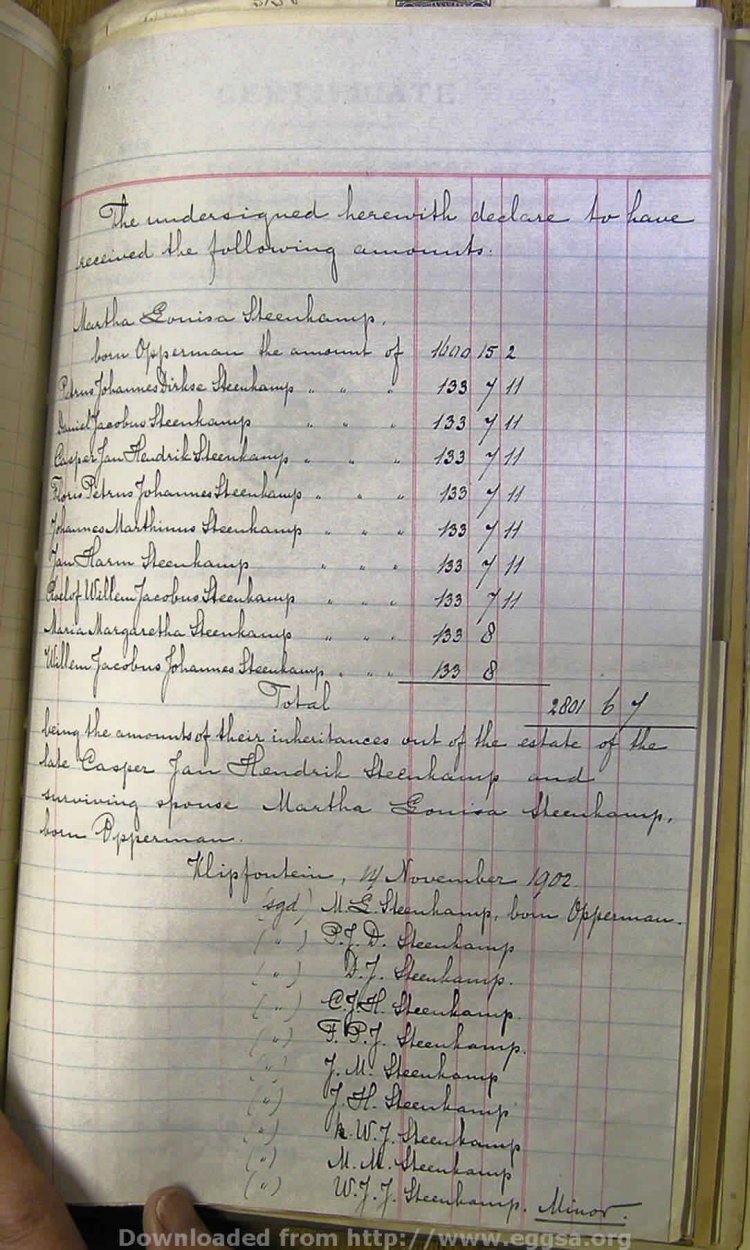 The undersigned herewith declare to have
received the following amounts:
Martha Louisa Steenkamp,
born Opperman the amount of 1600 15 2
Petrus Johannes Dirkse Steenkamp " " " 133 7 11
Daniel Jacobus Steenkamp " " " 133 7 11
Casper Jan Hendrik Steenkamp " " " 133 7 11
Floris Petrus Johannes Steenkamp " " " 133 7 11
Johannes Marthinus Steenkamp " " " 133 7 11
Jan Harm Steenkamp " " " 133 7 11
Roelof Willem Jacobus Steenkamp " " " 133 7 11
Maria Margaretha Steenkamp " " " 133 8
Willem Jacobus Johannes Steenkamp " " " 133 8
Total 2801 6 7
being the amounts of their inheritances out of the estate of the
late Casper Jan Hendrik Steenkamp and
surviving spouse Martha Louisa Steenkamp,
born Opperman.
Klipfontein, 14 November 1902.
(sgd) M. L. Steenkamp, born Opperman.
(") P. J. D. Steenkamp
(") D. J. Steenkamp.
(") C. J. H. Steenkamp.
(") F. P. J. Steenkamp.
(") J. M. Steenkamp
(") J. H. Steenkamp
(") R. W. J. Steenkamp
(") M. M. Steenkamp
(") W. J. J. Steenkamp. Minor.
Downloaded from http://www.eggsa.org